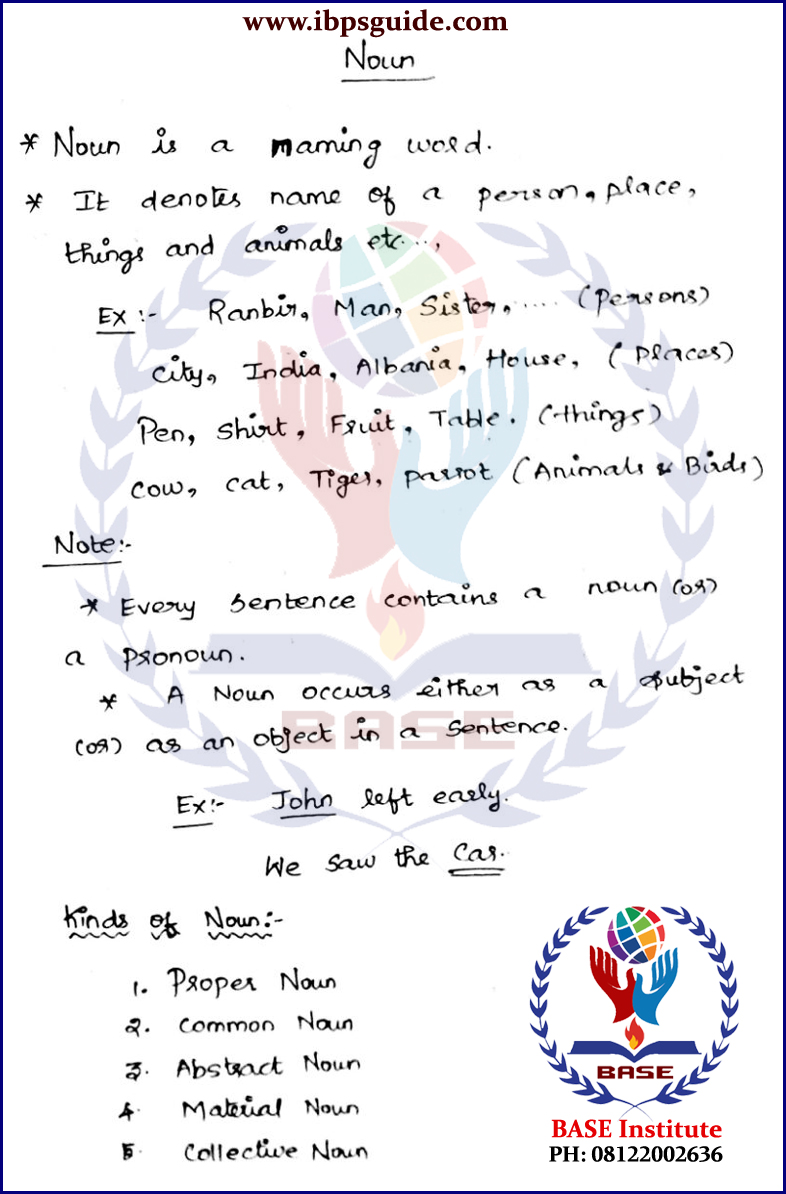 www.ibpsguide.com
Noun
* Noun is a maming word.
* It denotes name of a person, place,
things and animals etc...,
Ex :- Ranbir, Man, Sister, ..... (Persons)
city, India, Albania, House, (places)
Pen, shirt, Fruit, Table. (things)
cow, cat, Tiger, parrot (Animals & Birds)
Note:-
* Every sentence contains a noun (or)
a pronoun.
* A Noun occurs either as a subject
(or) as an object in a sentence.
BASE
Ex:- John left early.
We saw the Car.
Kinds of Noun:-
1. Proper Noun
2. common Noun
3. Abstract Noun
4. Material Noun
5. collective Noun
BASE
BASE Institute
PH: 08122002636